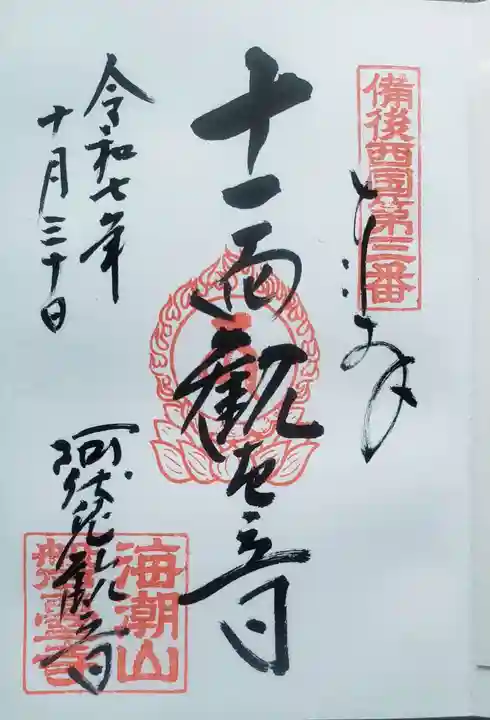 備後西国第三番
奉拝
十一面観世音
令和七年
十月三十日
阿伏兎観音
海潮山
磐臺寺